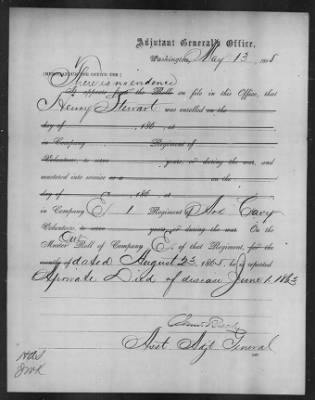 Adjutant General's Office,
Washington, May 13, 1865
(MEMORANDUM FOR OFFICE USE.)
There is no evidence
It appears from the Rolls on file in this Office, that
Henry Stewart was enrolled on the
day of 186 , at
in Company Regiment of
Volunteers, to serve years, or during the war, and
mustered into service as a on the
day of 186 , at
in Company E, 1 Regiment of
Volunteers, to serve years, or during the war. On the
Muster Out Roll of Company E, of that Regiment, for the
months of dated August 23, 1865, he is reported
A private Died of disease June 1. 1863
Asst Adjt General